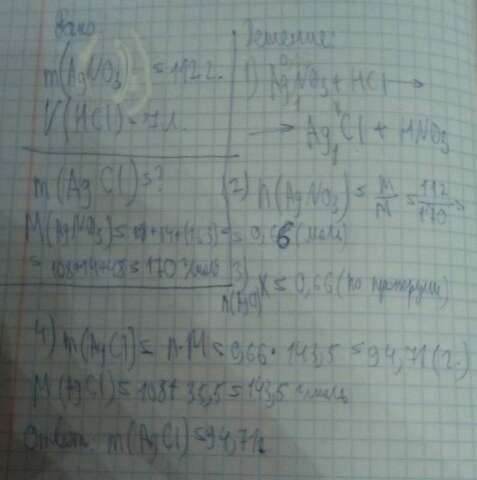 Дано
m(AgNO3) = 112г.
V(HCl) = 7л.
m(AgCl) = ?
M(AgNO3) =
= 108+14+48 = 170 г/моль
Решение:
1) AgNO3 + HCl →
→ AgCl + HNO3
2) n(AgNO3) = m/M = 112/170 =
= 0,66 (моль)
3) n(AgCl) x = 0,66 (по пропорции)
4) m(AgCl) = n·M = 0,66 · 143,5 = 94,71 (г.)
M(AgCl) = 108 + 35,5 = 143,5 г/моль
Ответ: m(AgCl) = 94,71г